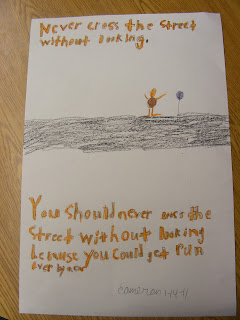 Never cross the street
without looking.
You should never cross the
street without looking
because you could get run
over by a car
cameron